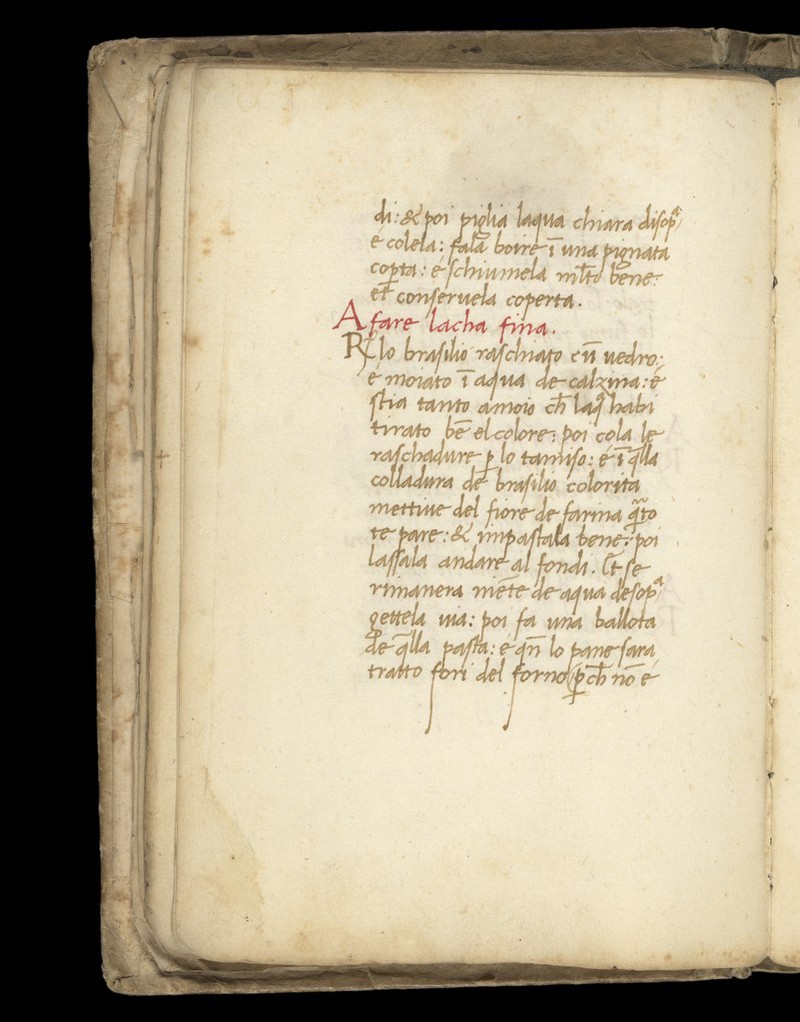 di: & poi piglia laqua chiara disop̄ᵃ
é colela: fala boire ī una pignata
cop̱ta: é schiumela ml̄to bene:
et̄ conseruela coperta.
A fare lacha fina.
℞ lo brasilio raschiato cū uedro:
e moiato ī aqua de calzina: é
stia tanto amoio ch̄ laqᵃ habi
tirato bē el colore: poi cola le
raschadure p̱ lo tamiso: é ī q̄lla
colladura de brasilio colorita
mettiue del fiore de farina q̄ᵃto
te pare: & impastala bene: poi
lassala andare al fondi. Et se
rimanera niēte de aqua desopᵃ
gettela uia: poi fa una ballota
de q̄lla pasta: é qn̄ lo pane sara
tratto fori del forno (p̱ch̄ nō é